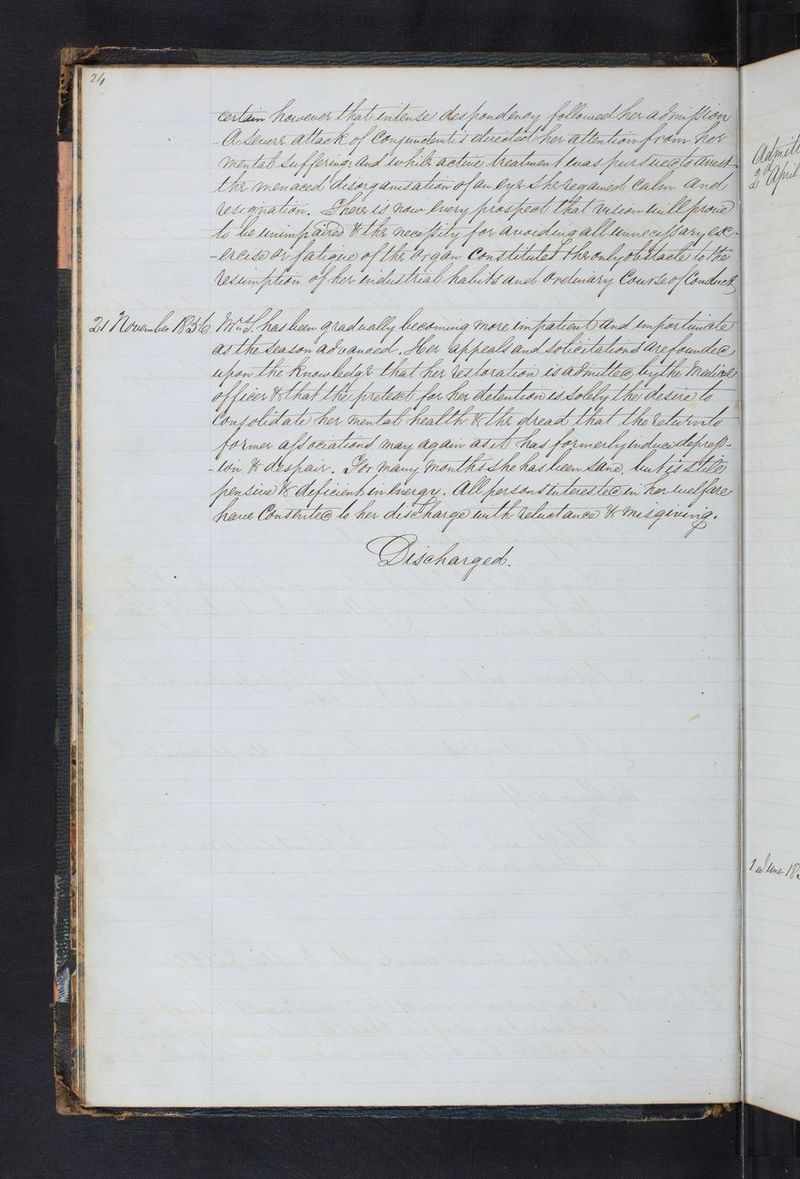 24
certain however that intense despondency followed her admission
A severe attack of Conjunctivitis directed her attention from her
mental sufferings and while active treatment was pursued to arrest
the menaced disorganisation of an eye she regained Calm and
resignation. There is now every prospect that vision will prove
to be unimpaired & the necessity for avoiding all unnecessary ex-
-ercise or fatigue of the organ Constitutes the only obstacle to the
resumption of her industrial habits and ordinary Course of Conduct
21 November 1856 Mrs S. has been gradually becoming more impatient and importunate
as the season advanced. Her appeals and solicitations are founded
upon the knowledge that her restoration is admitted by the Medical
officer & that the pretext for her detention is solely the desire to
Consolidate her mental health & the dread that the return to
former associations may again as it has formerly induce depress-
-ion & despair. For many months she has been sane, but is still
pensive & deficient in energy. All persons interested in her welfare
have Consented to her discharge with reluctance & misgiving.
Discharged.
2d April
1 June 18